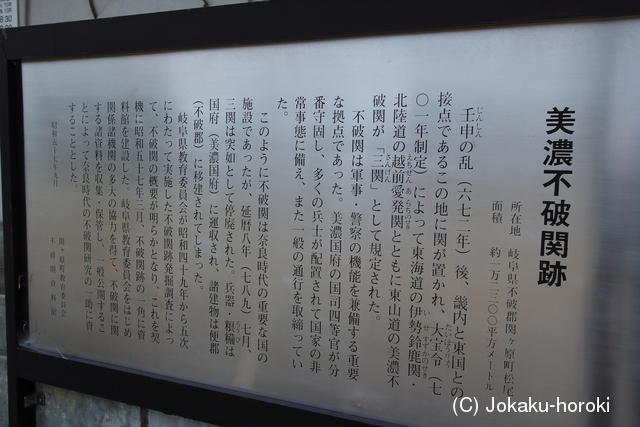 美濃不破関跡
所在地　岐阜県不破郡関ヶ原町松尾
面積　約一万二三〇〇平方メートル
壬申の乱（六七二年）後、畿内と東国との
接点であるこの地に関が置かれ、大宝令（七
〇一年制定）によって東海道の伊勢鈴鹿関・
北陸道の越前愛発関とともに東山道の美濃不
破関が「三関」として規定された。
不破関は軍事・警察の機能を兼備する重要
な拠点であった。美濃国府の国司四等官が分
番守固し、多くの兵士が配置されて国家の非
常事態に備え、また一般の通行を取締ってい
た。
このように不破関は奈良時代の重要な国の
施設であったが、延暦八年（七八九）七月、
三関は突如として停廃された。兵器・粮糒は
国府（美濃国府）に運収され、諸建物は便郡
（不破郡）に移建されてしまった。
岐阜県教育委員会が昭和四十九年から五次
にわたって実施した不破関跡発掘調査によっ
て、不破関の概要が明らかとなり、これを契
機に昭和五十七年三月、不破関跡の一角に資
料館を建設した。岐阜県教育委員会をはじめ
関係諸機関の多大の協力を得て、不破関に関
する諸資料を収集・保管し、一般公開するこ
とによって奈良時代の不破関研究の一助に資
することとした。
昭和五十七年九月
関ヶ原町教育委員会
不破関資料館
(C) Jokaku-horoki